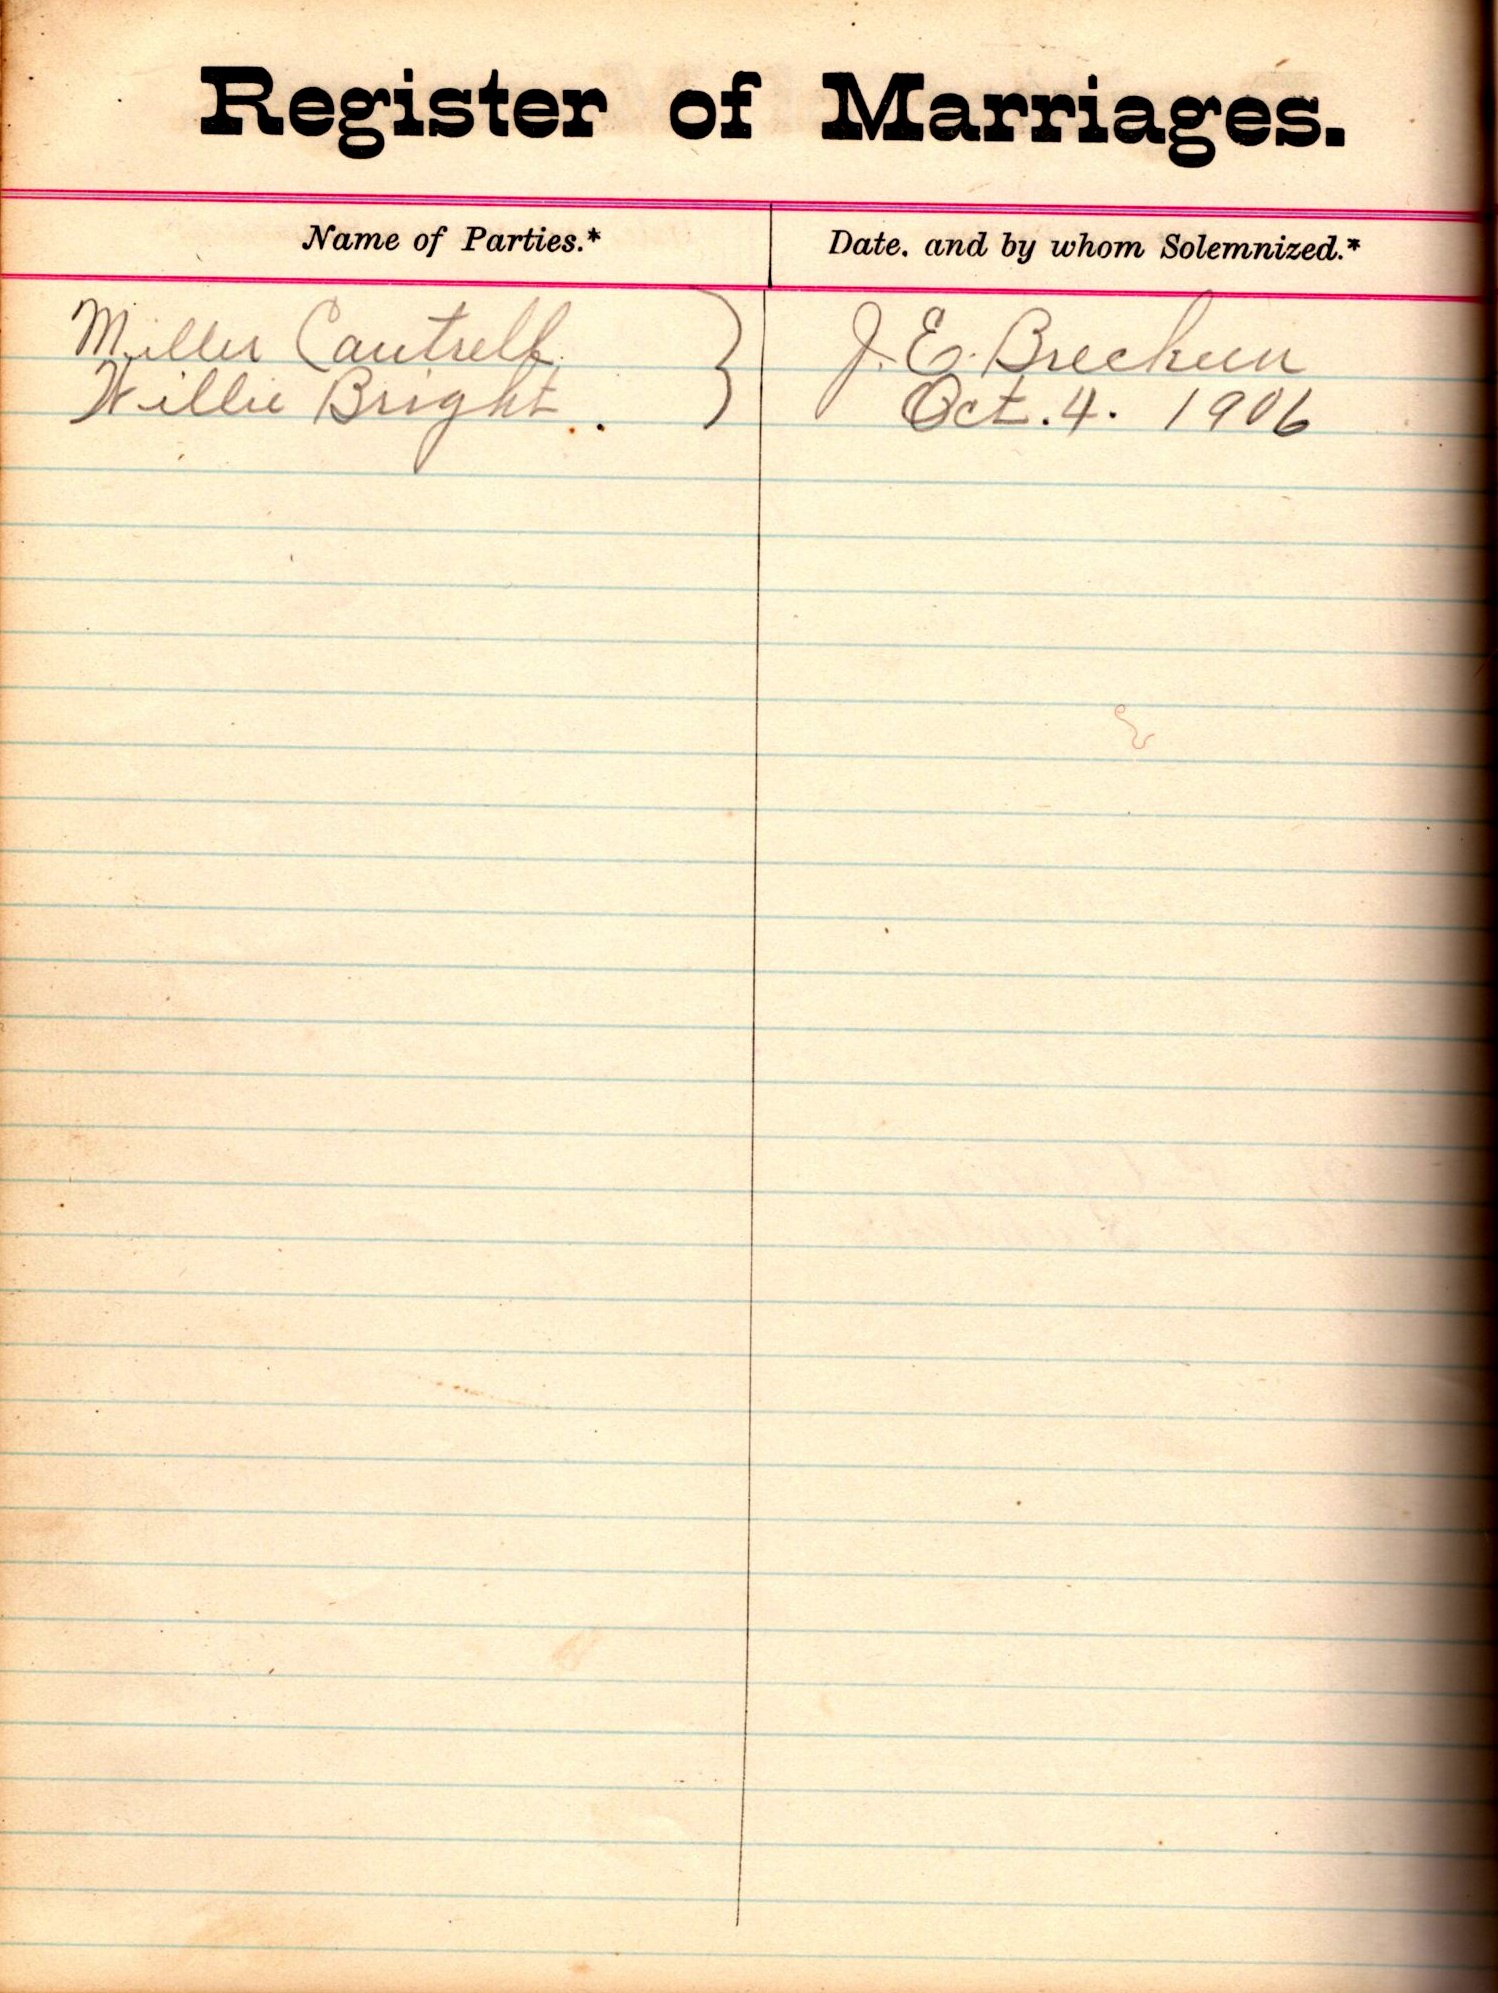 Register of Marriages.
Name of Parties.*
Date. and by whom Solemnized.*
Miller Cantrell
Willie Bright
J. E. Brecheen
Oct. 4. 1906